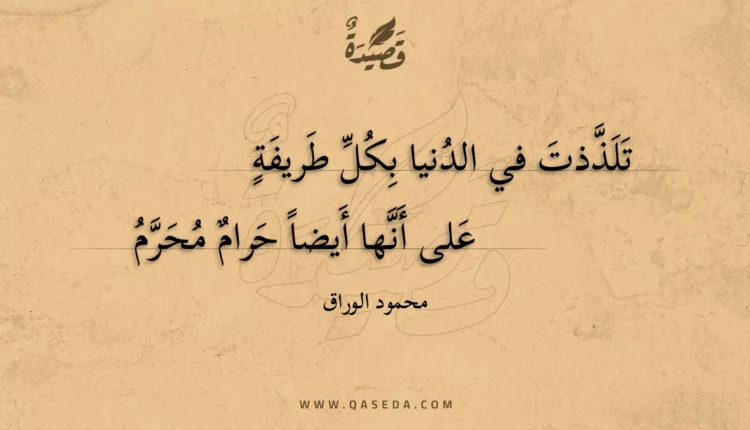 قَصِيْدَةٌ
تَلَذَّذتَ في الدُنيا بِكُلِّ طَريفَةٍ
عَلى أَنَّها أَيضاً حَرامٌ مُحَرَّمُ
محمود الوراق
WWW.QASEDA.COM